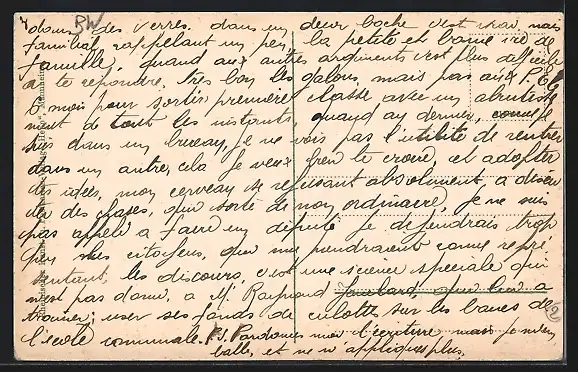 dans des verres. dans un decor boche c'est vrai mais
familial, rappelant un peu, la petite et bonne vie de
famille, quand aux autres arguments c'est plus difficile
de te répondre, très bon les galons, mais pas aux P.
6 mois pour sortir première classe avec un abrutisse
ment de tout les instants, quand au dernier, je
suis dans un bureau, je ne vois pas l'utilité de rentrer
dans un autre, cela je veux bien le croire, et adopter
tes idées, mon cerveau se refusant absolument, a discu
ter des choses, qui sorte de mon ordinaire, je ne suis
pas appelé a faire un député je defendrais trop
peu les citoyens, qui me prendraient comme repré
sentant, les discours, c'est une science speciale qui
n'est pas donné, a Mr Raymond Foulard, qui a
user ses fonds de culotte sur les bancs de
l'école communale. P.S. Pardonnes moi l'écriture mais je m'em
balle, et ne m'appliques plus.